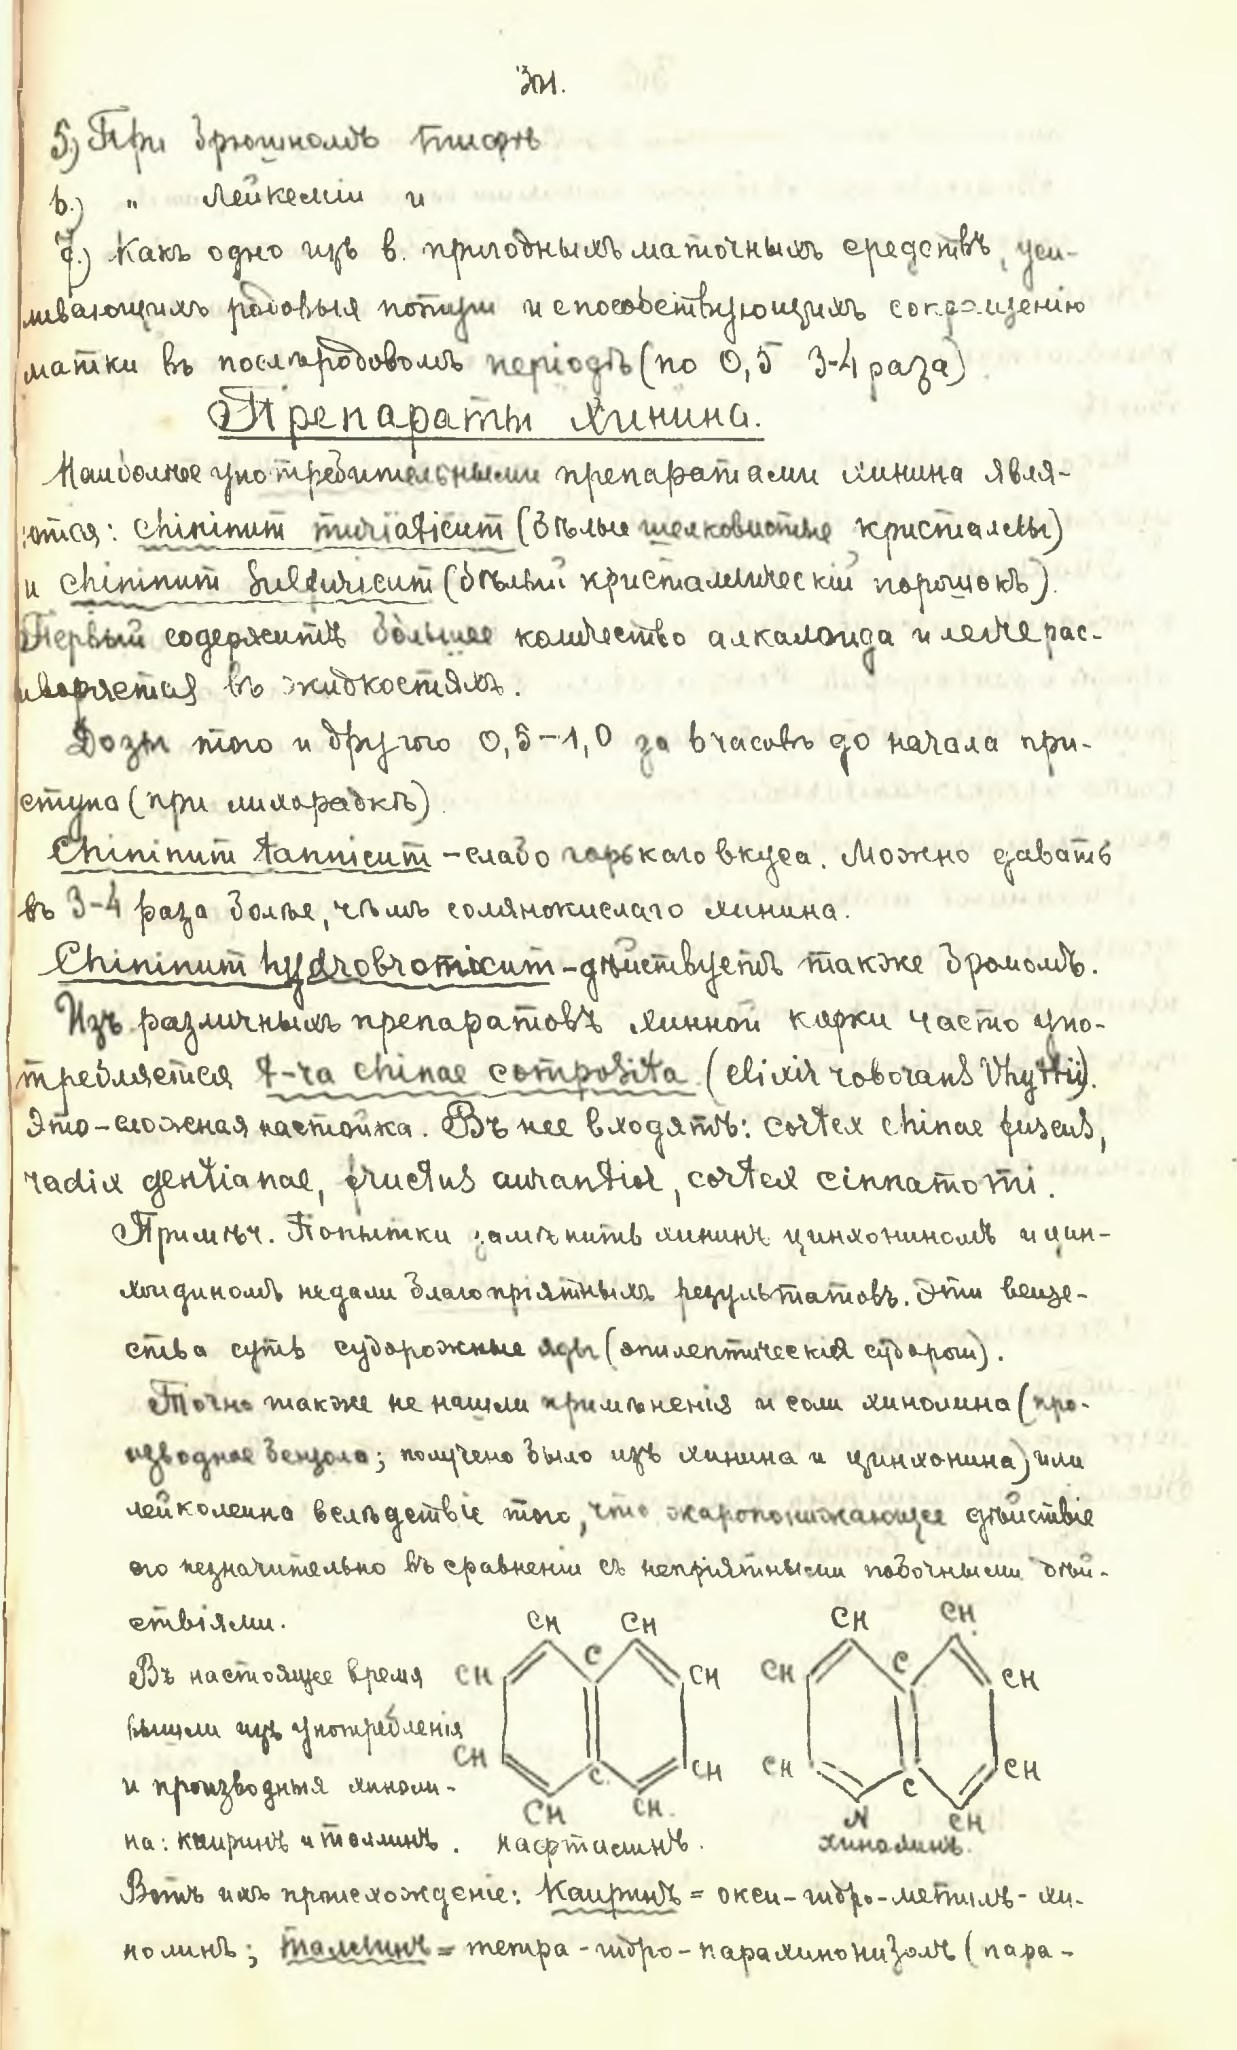 5) При брюшномъ тифѣ
6.) " Лейкеміи и
7.) Какъ одно изъ в. пригодныхъ маточныхъ средствъ, уси-
ливающихъ родовыя потуги и способствующихъ сокращенію
матки въ послѣродовомъ періодѣ (по 0,5 3-4 раза)
Препараты хинина.
Наиболѣе употребительными препаратами хинина явля-
ются: Chininum muriaticum (бѣлые шелковистые кристаллы)
и Chininum Sulfuricum (бѣлый кристаллическій порошокъ).
Первый содержитъ большее количество алкалоида и легче рас-
творяется въ жидкостяхъ.
Дозы того и другого 0,5-1,0 за 6 часовъ до начала при-
ступа (при лихорадкѣ)
Chininum tannicum - слабо горькаго вкуса. Можно давать
въ 3-4 раза болѣе, чѣмъ солянокислаго хинина.
Chininum hydrobromicum - дѣйствуетъ также бромомъ.
Изъ различныхъ препаратовъ хинной корки часто упо-
требляется t-ra chinae composita (elixir roborans Vhyttii).
Это - сложная настойка. Въ нее входятъ: cortex chinae fuscus,
radix gentianae, fructus aurantior, cortex cinnamomi.
Примѣч. Попытки замѣнить хининъ цинхониномъ и цин-
хонидиномъ не дали благопріятныхъ результатовъ. Эти веще-
ства суть судорожные яды (эпилептическія судороги).
Точно также не нашли примѣненія и соли хинолина (про-
изводное бензола; получено было изъ хинина и цинхонина) или
лейколеина вслѣдствіе того, что жаропонижающее дѣйствіе
его незначительно въ сравненіи съ непріятными побочными дѣй-
ствіями.
CH CH CH CH
Въ настоящее время CH C CH CH C CH
вышли изъ употребленія
CH C CH CH C CH
и производныя хиноли-
CH CH. N CH
на: каиринъ и таллинъ. нафталинъ. хинолинъ.
Вотъ ихъ происхожденіе: Каиринъ = окси-гидро-метилъ-хи-
нолинъ; таллинъ = тетра-гидро-парахинонизолъ (пара-